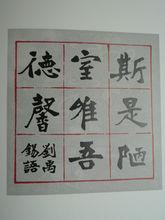 斯是陋
室唯吾
德馨
劉禹
錫語